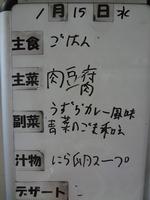 1月15日 水
主食 ごはん
主菜 肉豆腐
副菜 うずらカレー風味
青菜のごま和え
汁物 にら卵スープ
デザート